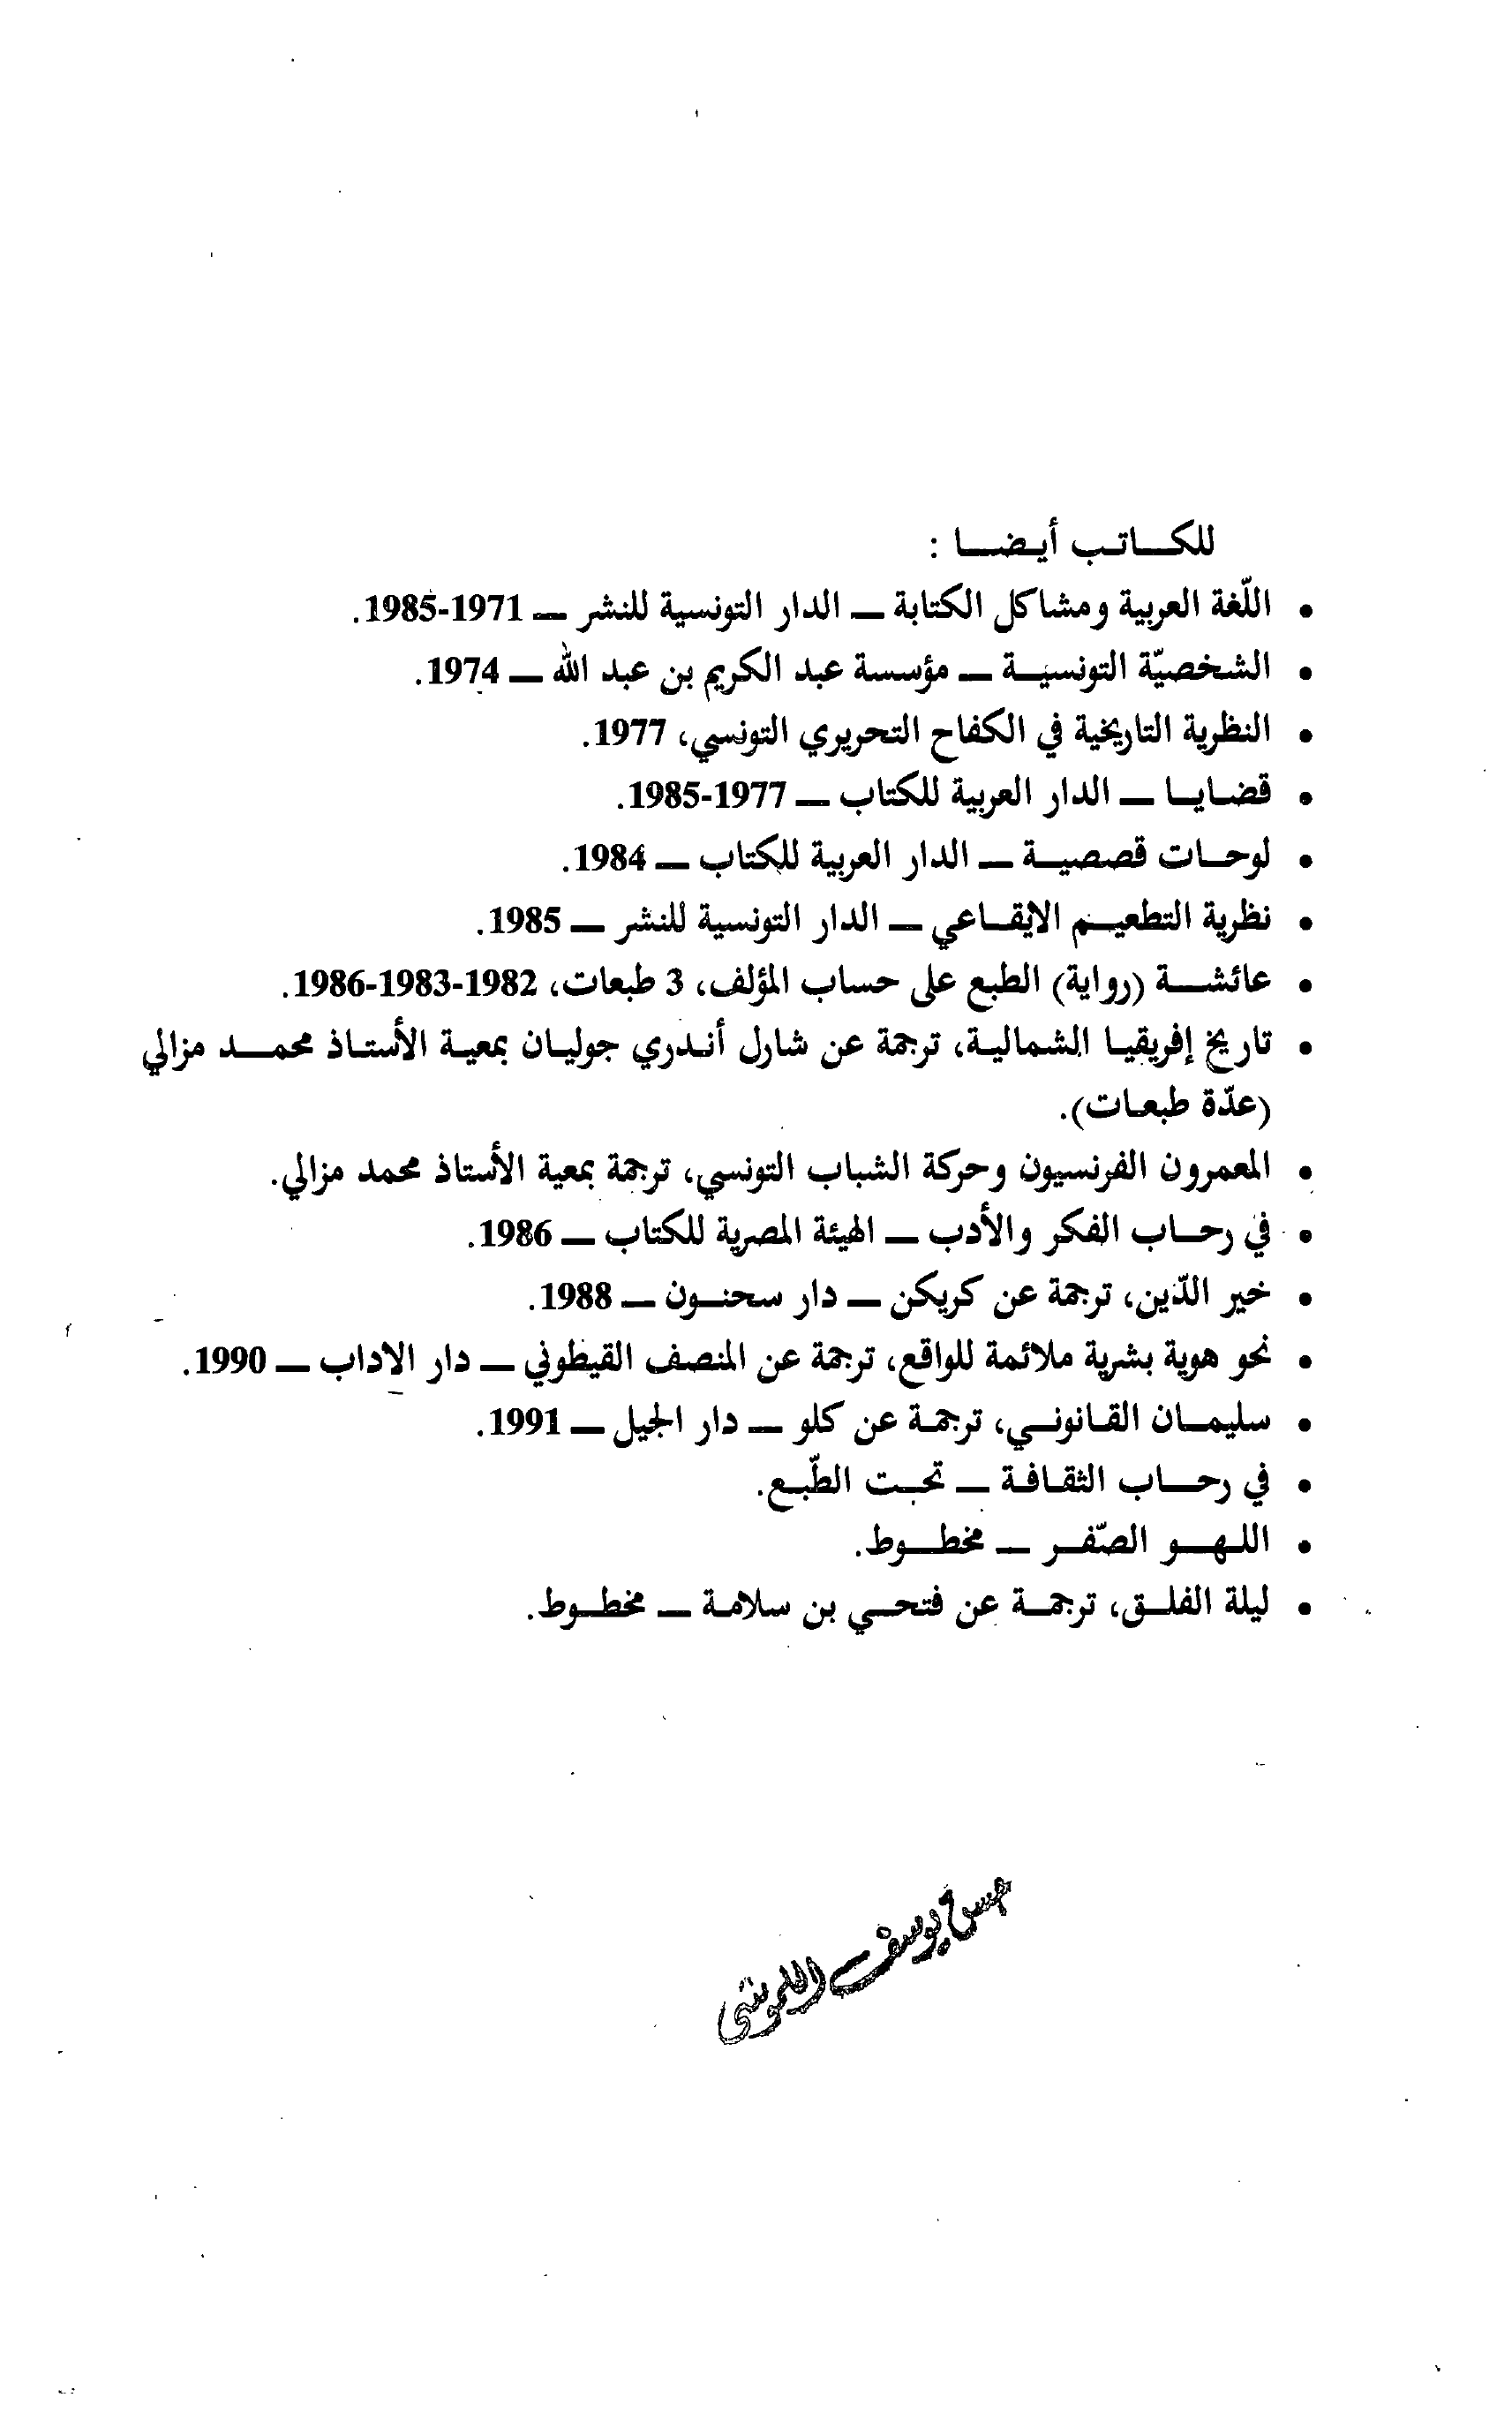 للكاتب أيضا :
• اللّغة العربية ومشاكل الكتابة — الدار التونسية للنشر — 1971-1985.
• الشخصيّة التونسية — مؤسسة عبد الكريم بن عبد الله — 1974.
• النظرية التاريخية في الكفاح التحريري التونسي، 1977.
• قضايا — الدار العربية للكتاب — 1977-1985.
• لوحات قصصية — الدار العربية للكتاب — 1984.
• نظرية التطعيم الايقاعي — الدار التونسية للنشر — 1985.
• عائشة (رواية) الطبع على حساب المؤلف، 3 طبعات، 1982-1983-1986.
• تاريخ إفريقيا الشمالية، ترجمة عن شارل أندري جوليان بمعية الأستاذ محمد مزالي
(عدّة طبعات).
• المعمرون الفرنسيون وحركة الشباب التونسي، ترجمة بمعية الأستاذ محمد مزالي.
• في رحاب الفكر والأدب — الهيئة المصرية للكتاب — 1986.
• خير الدّين، ترجمة عن كريكن — دار سحنون — 1988.
• نحو هوية بشرية ملائمة للواقع، ترجمة عن المنصف القيطوني — دار الاداب — 1990.
• سليمان القانوني، ترجمة عن كلو — دار الجيل — 1991.
• في رحاب الثقافة — تحت الطّبع.
• اللهو الصّفر — مخطوط.
• ليلة الفلق، ترجمة عن فتحي بن سلامة — مخطوط.
يوسف